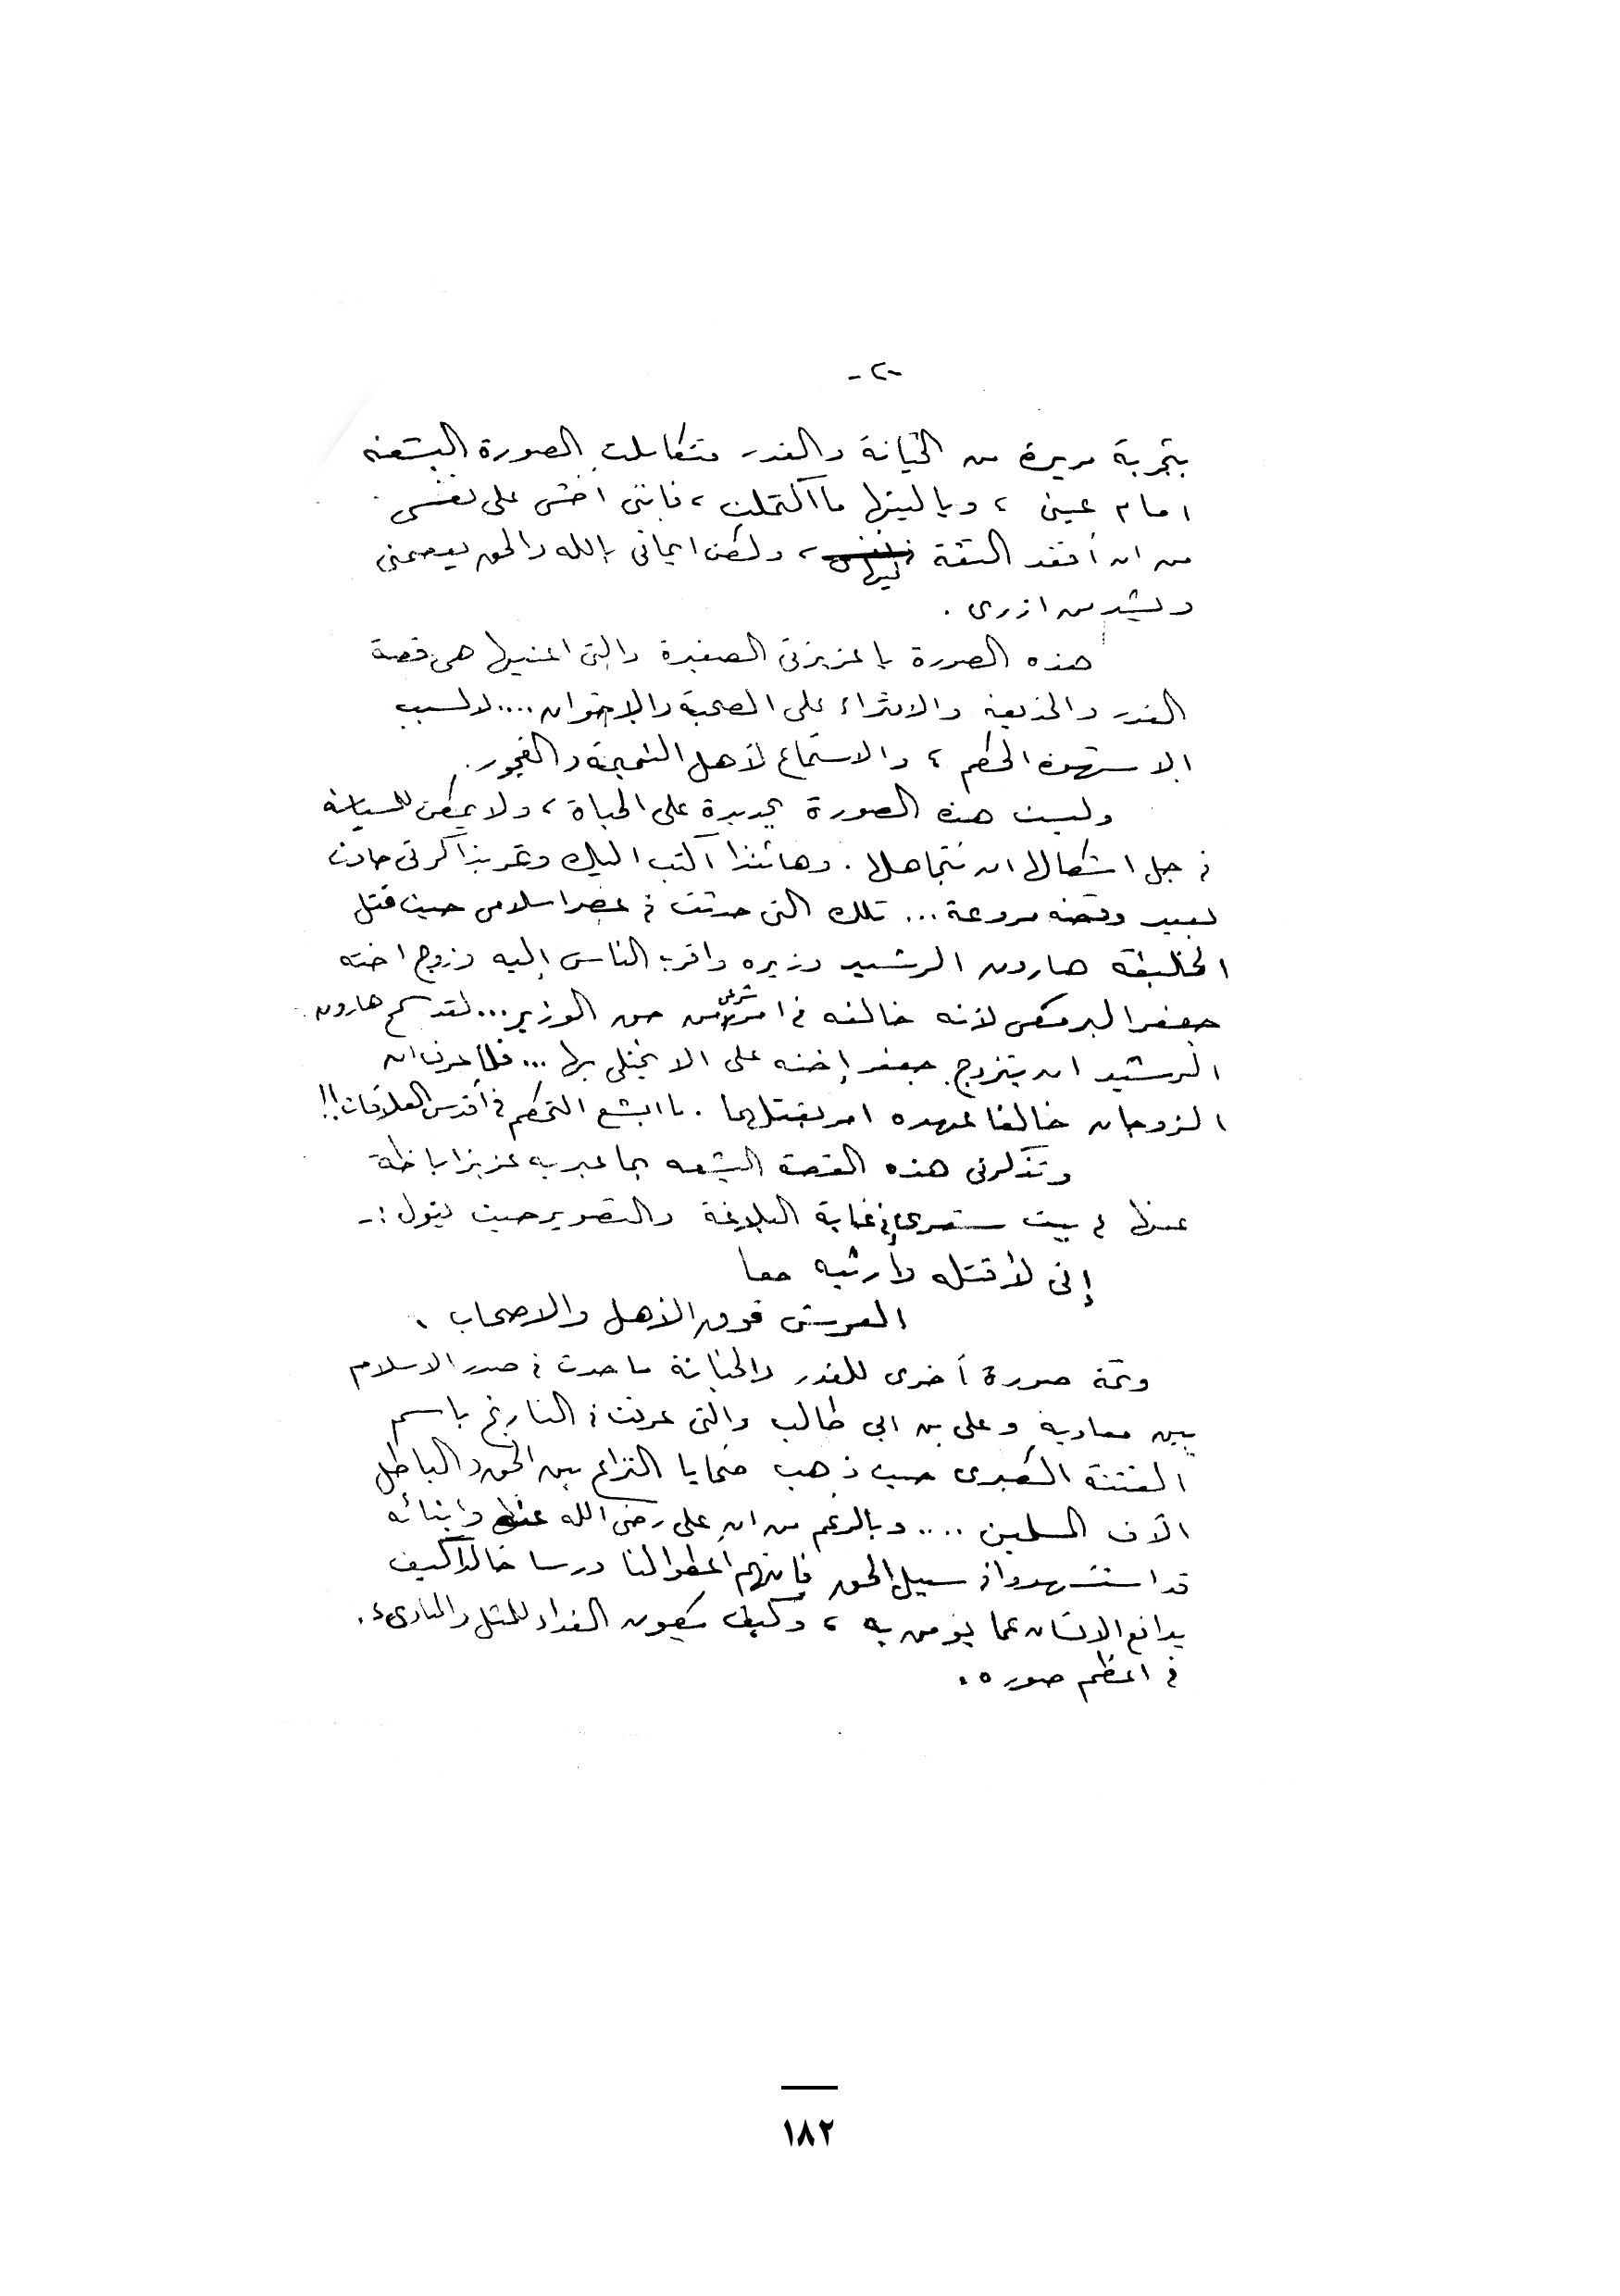 -٢-
بتجربة مريرة من الخيانة والغدر فتكاملت الصورة البشعه
امام عينى ، وياليتها ما اكتملت ، فاننى اخشى على نفسى
من ان أفقد الثقة فيها ، ولكن ايمانى بالله والحق يعصمنى
ويشد من ازرى .
هذه الصورة يا عزيزتى الصغيرة والتى اعنيها هى قصة
الغدر والخديعه والافتراء على الصحبة والاخوان .... لا لسبب
الا شهوة الحكم ، والاستماع لأهل النميمة والفجور .
وليست هذه الصورة بجديدة على الحياة ، ولا يمكن للسياسه
فى جل اشكالها ان تتجاهلها . وهأنذا اكتب اليك وتمر بذاكرتى حادث
بعيد وقصه مروعة ... تلك التى حدثت فى عصر اسلامى حين قتل
الخليفه هارون الرشيد وزيره واقرب الناس إليه وزوج اخته
جعفر البرمكى لأنه خالفه فى امر شرعى من الوزير ... لقد سمح هارون
الرشيد ان يتزوج جعفر إخته على الا يختلى بها ... فلما عرف ان
الزوجان خالفا عهده امر بقتلهما . ما ابشع التحكم فى أقدس العلاقات !!
وتذكرنى هذه القصة البشعه بما عبر به عزيز اباظة
عنها فى بيت شعرى فى غاية البلاغة والتصوير حيث يقول :-
إنى لأقتله وأرثيه معا
العرش فوق الأهل والاصحاب .
وثمة صورة أخرى للغدر والخيانة ما حدث فى صدر الاسلام
بين معاوية وعلى بن ابى طالب والتى عرفت فى التاريخ باسم
الفتنة الكبرى حيث ذهب ضحايا النزاع بين الحق والباطل
الآف المسلمين .... وبالرغم من ان على رضى الله عنه وابنائه
قد استشهدوا فى سبيل الحق فانهم اعطوا لنا درسا خالدا كيف
يدافع الانسان عما يؤمن به ، وكيف يكون الفداء للمثل والمبادىء .
فى اعظم صوره .
١٨٢